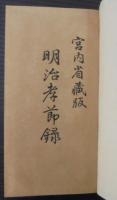 宮内省藏版
明治孝節録